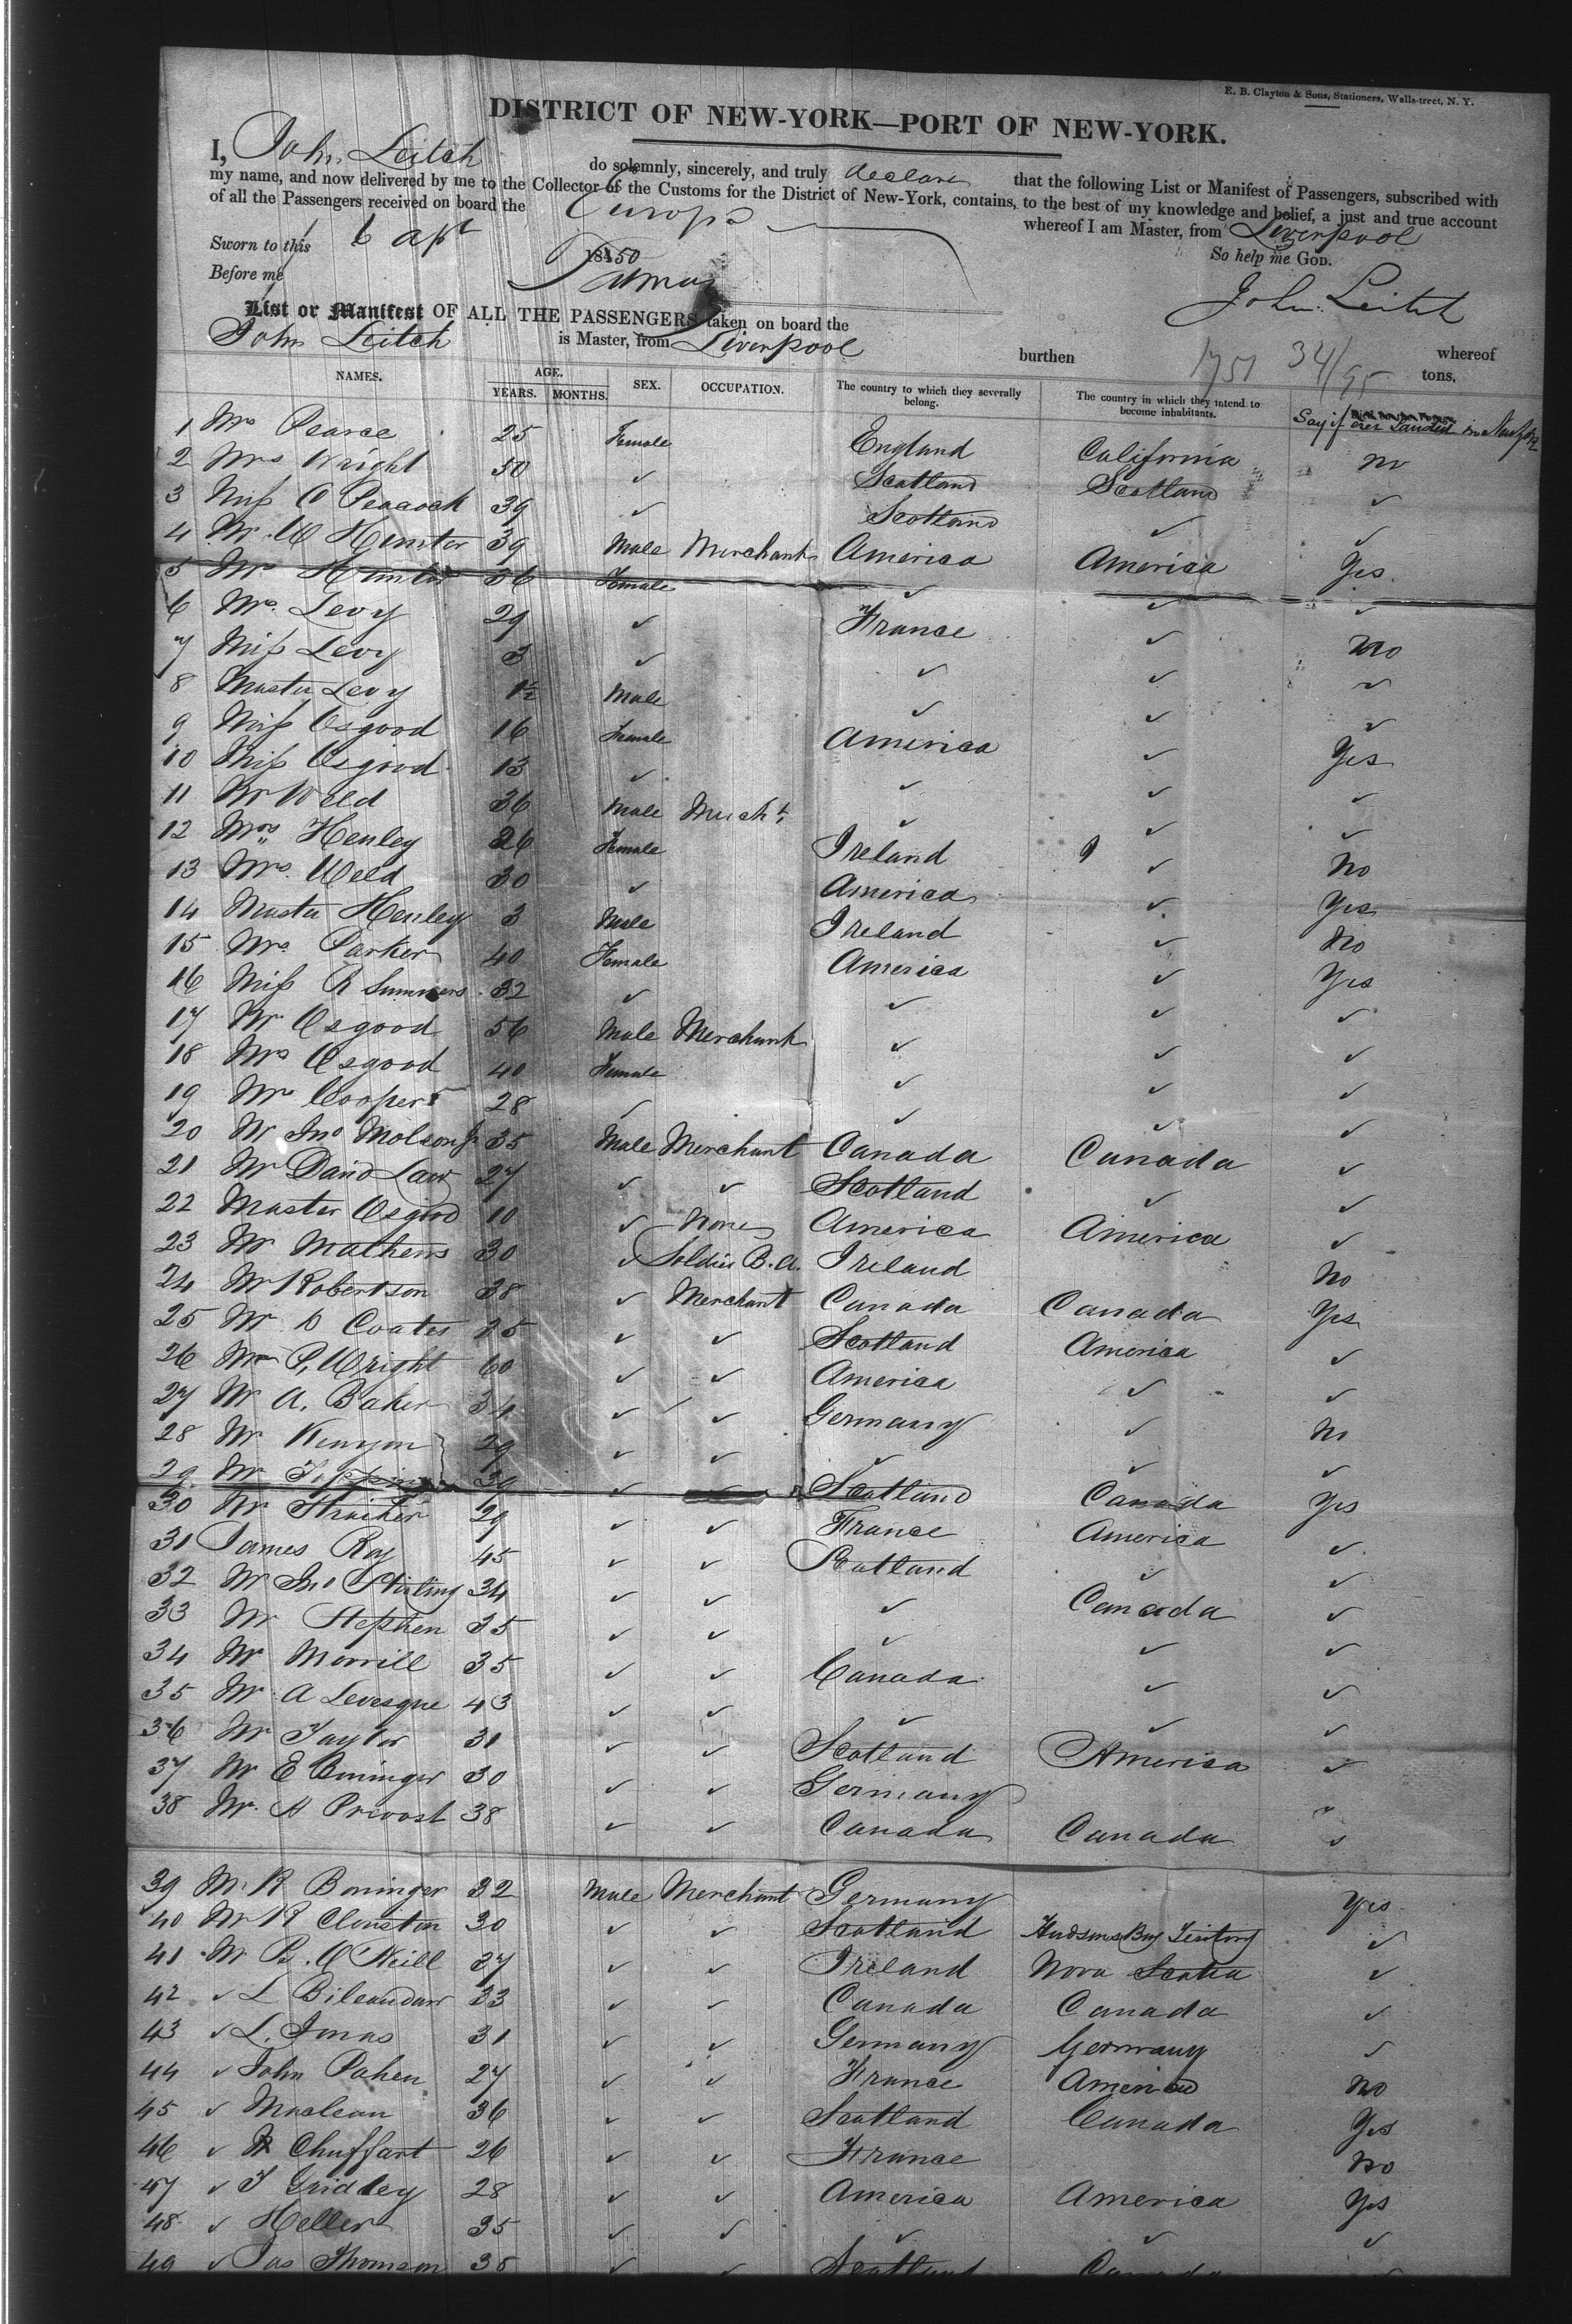 E. B. Clayton & Sons, Stationers, Walls-treet, N. Y.
DISTRICT OF NEW-YORK—PORT OF NEW-YORK.
I, John Leitch do solemnly, sincerely, and truly declare that the following List or Manifest of Passengers, subscribed with
my name, and now delivered by me to the Collector of the Customs for the District of New-York, contains, to the best of my knowledge and belief, a just and true account
of all the Passengers received on board the Europa whereof I am Master, from Liverpool
Sworn to this 6 Apl 1850 So help me GOD.
Before me John Leitch
List or Manifest OF ALL THE PASSENGERS taken on board the
John Leitch is Master, from Liverpool burthen 1751 34/95 tons, whereof
NAMES. AGE. YEARS. MONTHS. SEX. OCCUPATION. The country to which they severally belong. The country in which they intend to become inhabitants. Say if ever landed in New York
1 Mrs Pearce 25 Female England California no
2 Mrs Wright 50 ✓ Scotland Scotland ✓
3 Miss Peacock 39 ✓ Scotland ✓ ✓
4 Mr W Hunter 39 Male Merchant America America Yes
5 Mrs Hunter 36 Female ✓ ✓ ✓
6 Mrs Levy 29 ✓ France ✓ No
7 Miss Levy 3 ✓ ✓ ✓ ✓
8 Master Levy 1½ Male ✓ ✓ ✓
9 Miss Osgood 16 Female America ✓ Yes
10 Miss Osgood 13 ✓ ✓ ✓ ✓
11 Mr Weld 36 Male Mercht ✓ ✓ ✓
12 Mrs Henley 26 Female Ireland ✓ No
13 Mrs Weld 30 ✓ America ✓ Yes
14 Master Henley 3 Male Ireland ✓ No
15 Mrs Parker 40 Female America ✓ Yes
16 Miss R Summers 32 ✓ ✓ ✓ ✓
17 Mr Osgood 56 Male Merchant ✓ ✓ ✓
18 Mrs Osgood 40 Female ✓ ✓ ✓
19 Mrs Cooper 28 ✓ ✓ ✓ ✓
20 Mr Jno Molson Jr 35 Male Merchant Canada Canada ✓
21 Mr David Law 27 ✓ ✓ Scotland ✓ ✓
22 Master Osgood 10 ✓ None America America ✓
23 Mr Mathews 30 ✓ Soldier B.A. Ireland No
24 Mr Robertson 38 ✓ Merchant Canada Canada Yes
25 Mr D Coates 25 ✓ ✓ Scotland America ✓
26 Mr P. Wright 60 ✓ ✓ America ✓ ✓
27 Mr A. Baker 34 ✓ ✓ Germany ✓ No
28 Mr Kenyon 29 ✓ ✓ ✓ ✓ ✓
29 Mr Topping 39 ✓ ✓ Scotland Canada Yes
30 Mr 29 ✓ ✓ France America ✓
31 James Roy 45 ✓ ✓ Scotland ✓ ✓
32 Mr Jno Stirling 34 ✓ ✓ ✓ Canada ✓
33 Mr Stephen 35 ✓ ✓ ✓ ✓ ✓
34 Mr Morrill 35 ✓ ✓ Canada ✓ ✓
35 Mr A Levesque 43 ✓ ✓ ✓ ✓ ✓
36 Mr Taylor 31 ✓ ✓ Scotland America ✓
37 Mr E Boninger 30 ✓ ✓ Germany
38 Mr A Provost 38 ✓ ✓ Canada Canada ✓
39 Mr R Boninger 32 Male Merchant Germany Yes
40 Mr R Clouston 30 ✓ ✓ Scotland Hudsons Bay Teritory ✓
41 Mr B. O'Neill 27 ✓ ✓ Ireland Nova Scotia ✓
42 ✓ L Bileaudeau 33 ✓ ✓ Canada Canada ✓
43 ✓ L. Jonas 31 ✓ ✓ Germany Germany ✓
44 ✓ John Pahen 27 ✓ ✓ France America No
45 ✓ Maclean 36 ✓ ✓ Scotland Canada Yes
46 ✓ Chuffart 26 ✓ ✓ France No
47 ✓ T Gridley 28 ✓ ✓ America America Yes
48 ✓ Heller 35 ✓ ✓ ✓ ✓ ✓
49 ✓ Jas Thomson 38 ✓ ✓ Scotland Canada